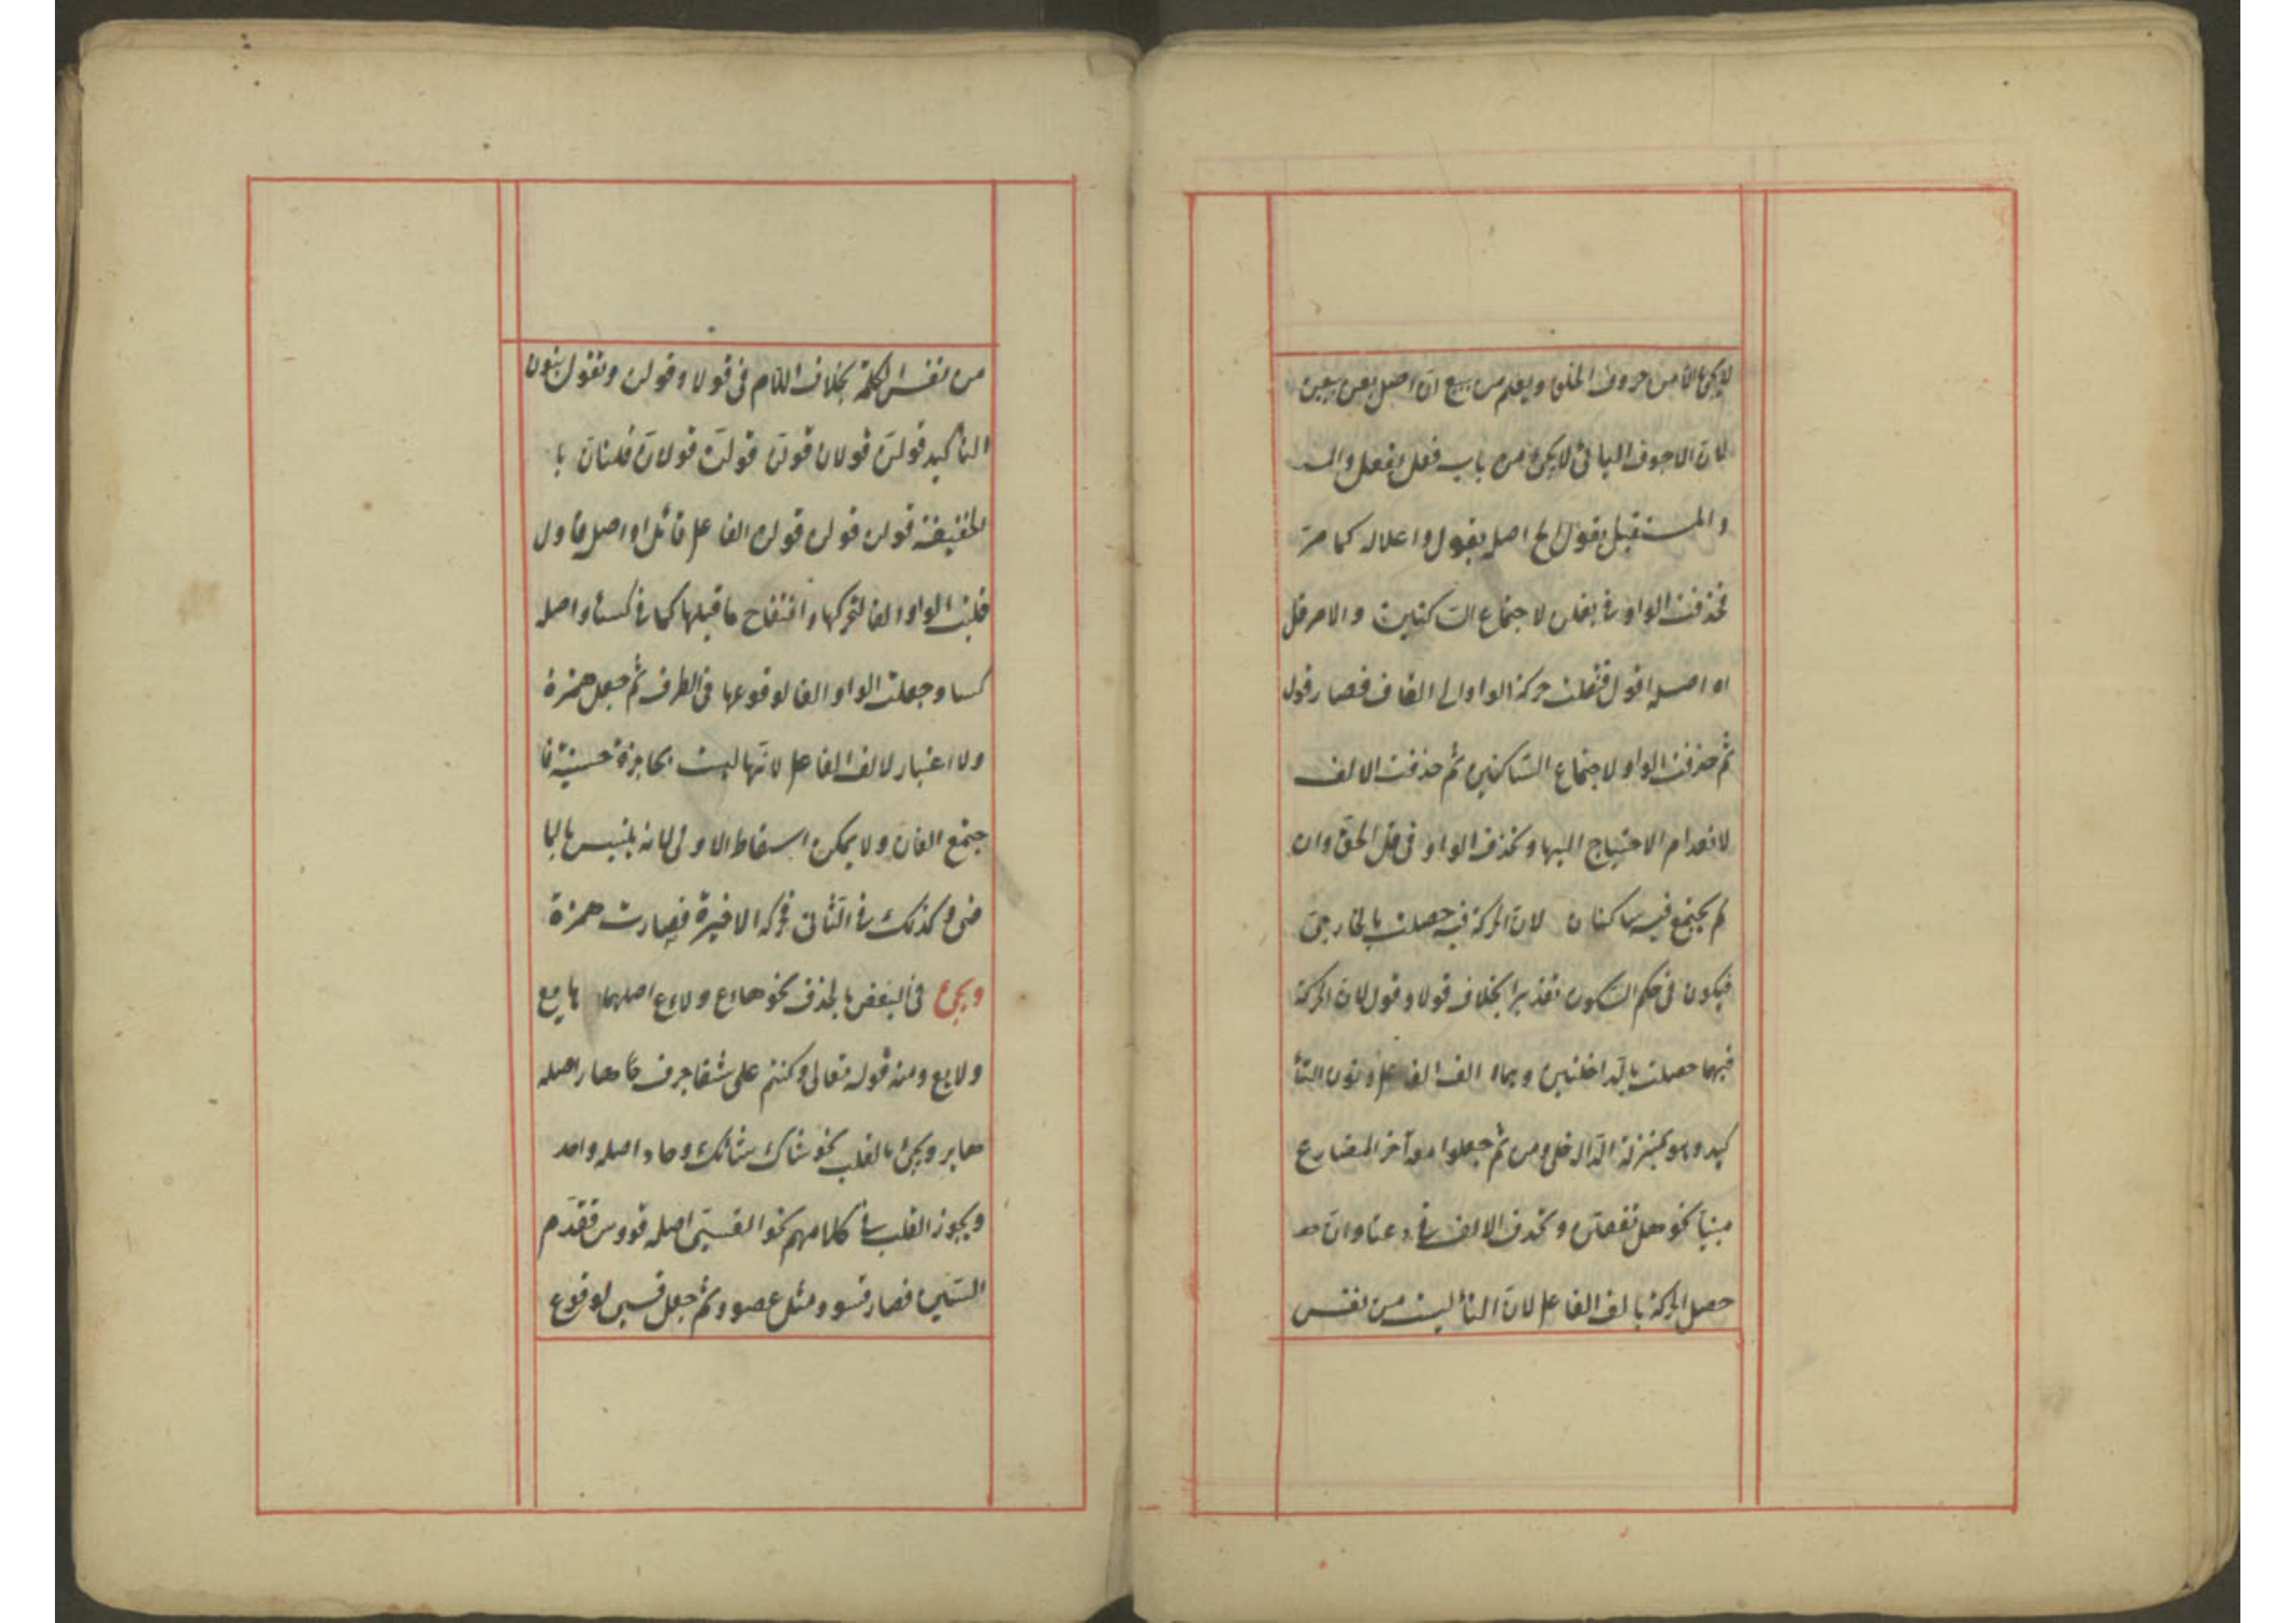 لا يجئ الا من حروف الحلق ويعلم من يبيع ان اصل بعن بيعن
لان الاجوف اليائى لا يجئ من باب فعل يفعل والمـ
والمستقبل يقول الخ اصله يقول واعلاله كما مر
فحذفت الواو فى يقلن لاجتماع الساكنين والامر قل
اه اصله اقول فنقلت حركة الواو الى القاف فصار قول
ثم حذفت الواو لاجتماع الساكنين ثم حذفت الالف
لانعدام الاحتياج اليها وتحذف الواو فى قل الحق وان
لم يجتمع فيه ساكنان لان الحركة فيه حصلت بالخارجى
فيكون فى حكم السكون تقديرا بخلاف قولا وقولن لان الحركة
فيهما حصلت بالداخلتين وهما الف الفاعل ونون التأ
كيد وهو بمنزلة الداخلى ومن ثم جعلوا معه آخر المضارع
مبنيا نحو هل تفعلن وتحذف الالف فى دعتا وان حـ
حصل الحركة بالف الفاعل لان التاء ليست من نفس
من نفس الكلمة بخلاف اللام فى قولا وقولن وتقول بنون
التاكيد قولن قولان قولن قولن قولان قلنان با
لخفيفة قولن قولن قولن الفاعل قائل اه اصله قاول
قلبت الواو الفا لتحركها وانفتاح ما قبلها كما فى كساء واصله
كساو جعلت الواو الفا لوقوعها فى الطرف ثم جعل همزة
ولا اعتبار لالف الفاعل لانها ليست بحاجزة حسينة فا
جتمع الفان ولا يمكن اسقاط الاولى لانه يلتبس بالما
ضى وكذلك فى الثانى فحركه الاخيرة فصارت همزة
ويجئ فى البعض بالحذف نحو هاع ولاع اصلهما هايع
ولايع ومنه قوله تعالى وكنتم على شفا جرف هار اصله
هاير ويجئ بالقلب نحو شاك شائك وحاد اصله واحد
ويجوز القلب فى كلامهم نحو القسى اصله قووس فقدم
السين فصار قسوو مثل عصوو ثم جعل قسى لوقوع